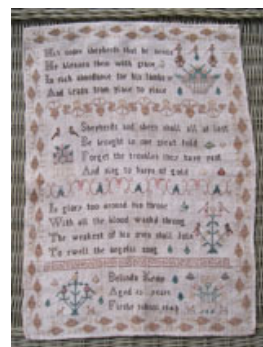 His under shepherds that he sends
He blesses them with grace
In rich abundance for his lambs
And leads from place to place
Shepherds and sheep shall all at last
Be brought to one great fold
Forget the troubles they have past
And sing to harps of gold
In glory too around his throne
With all the blood washd throng
The weakest of his own shall join
To swell the angelic song
Belinda
Aged 12 years